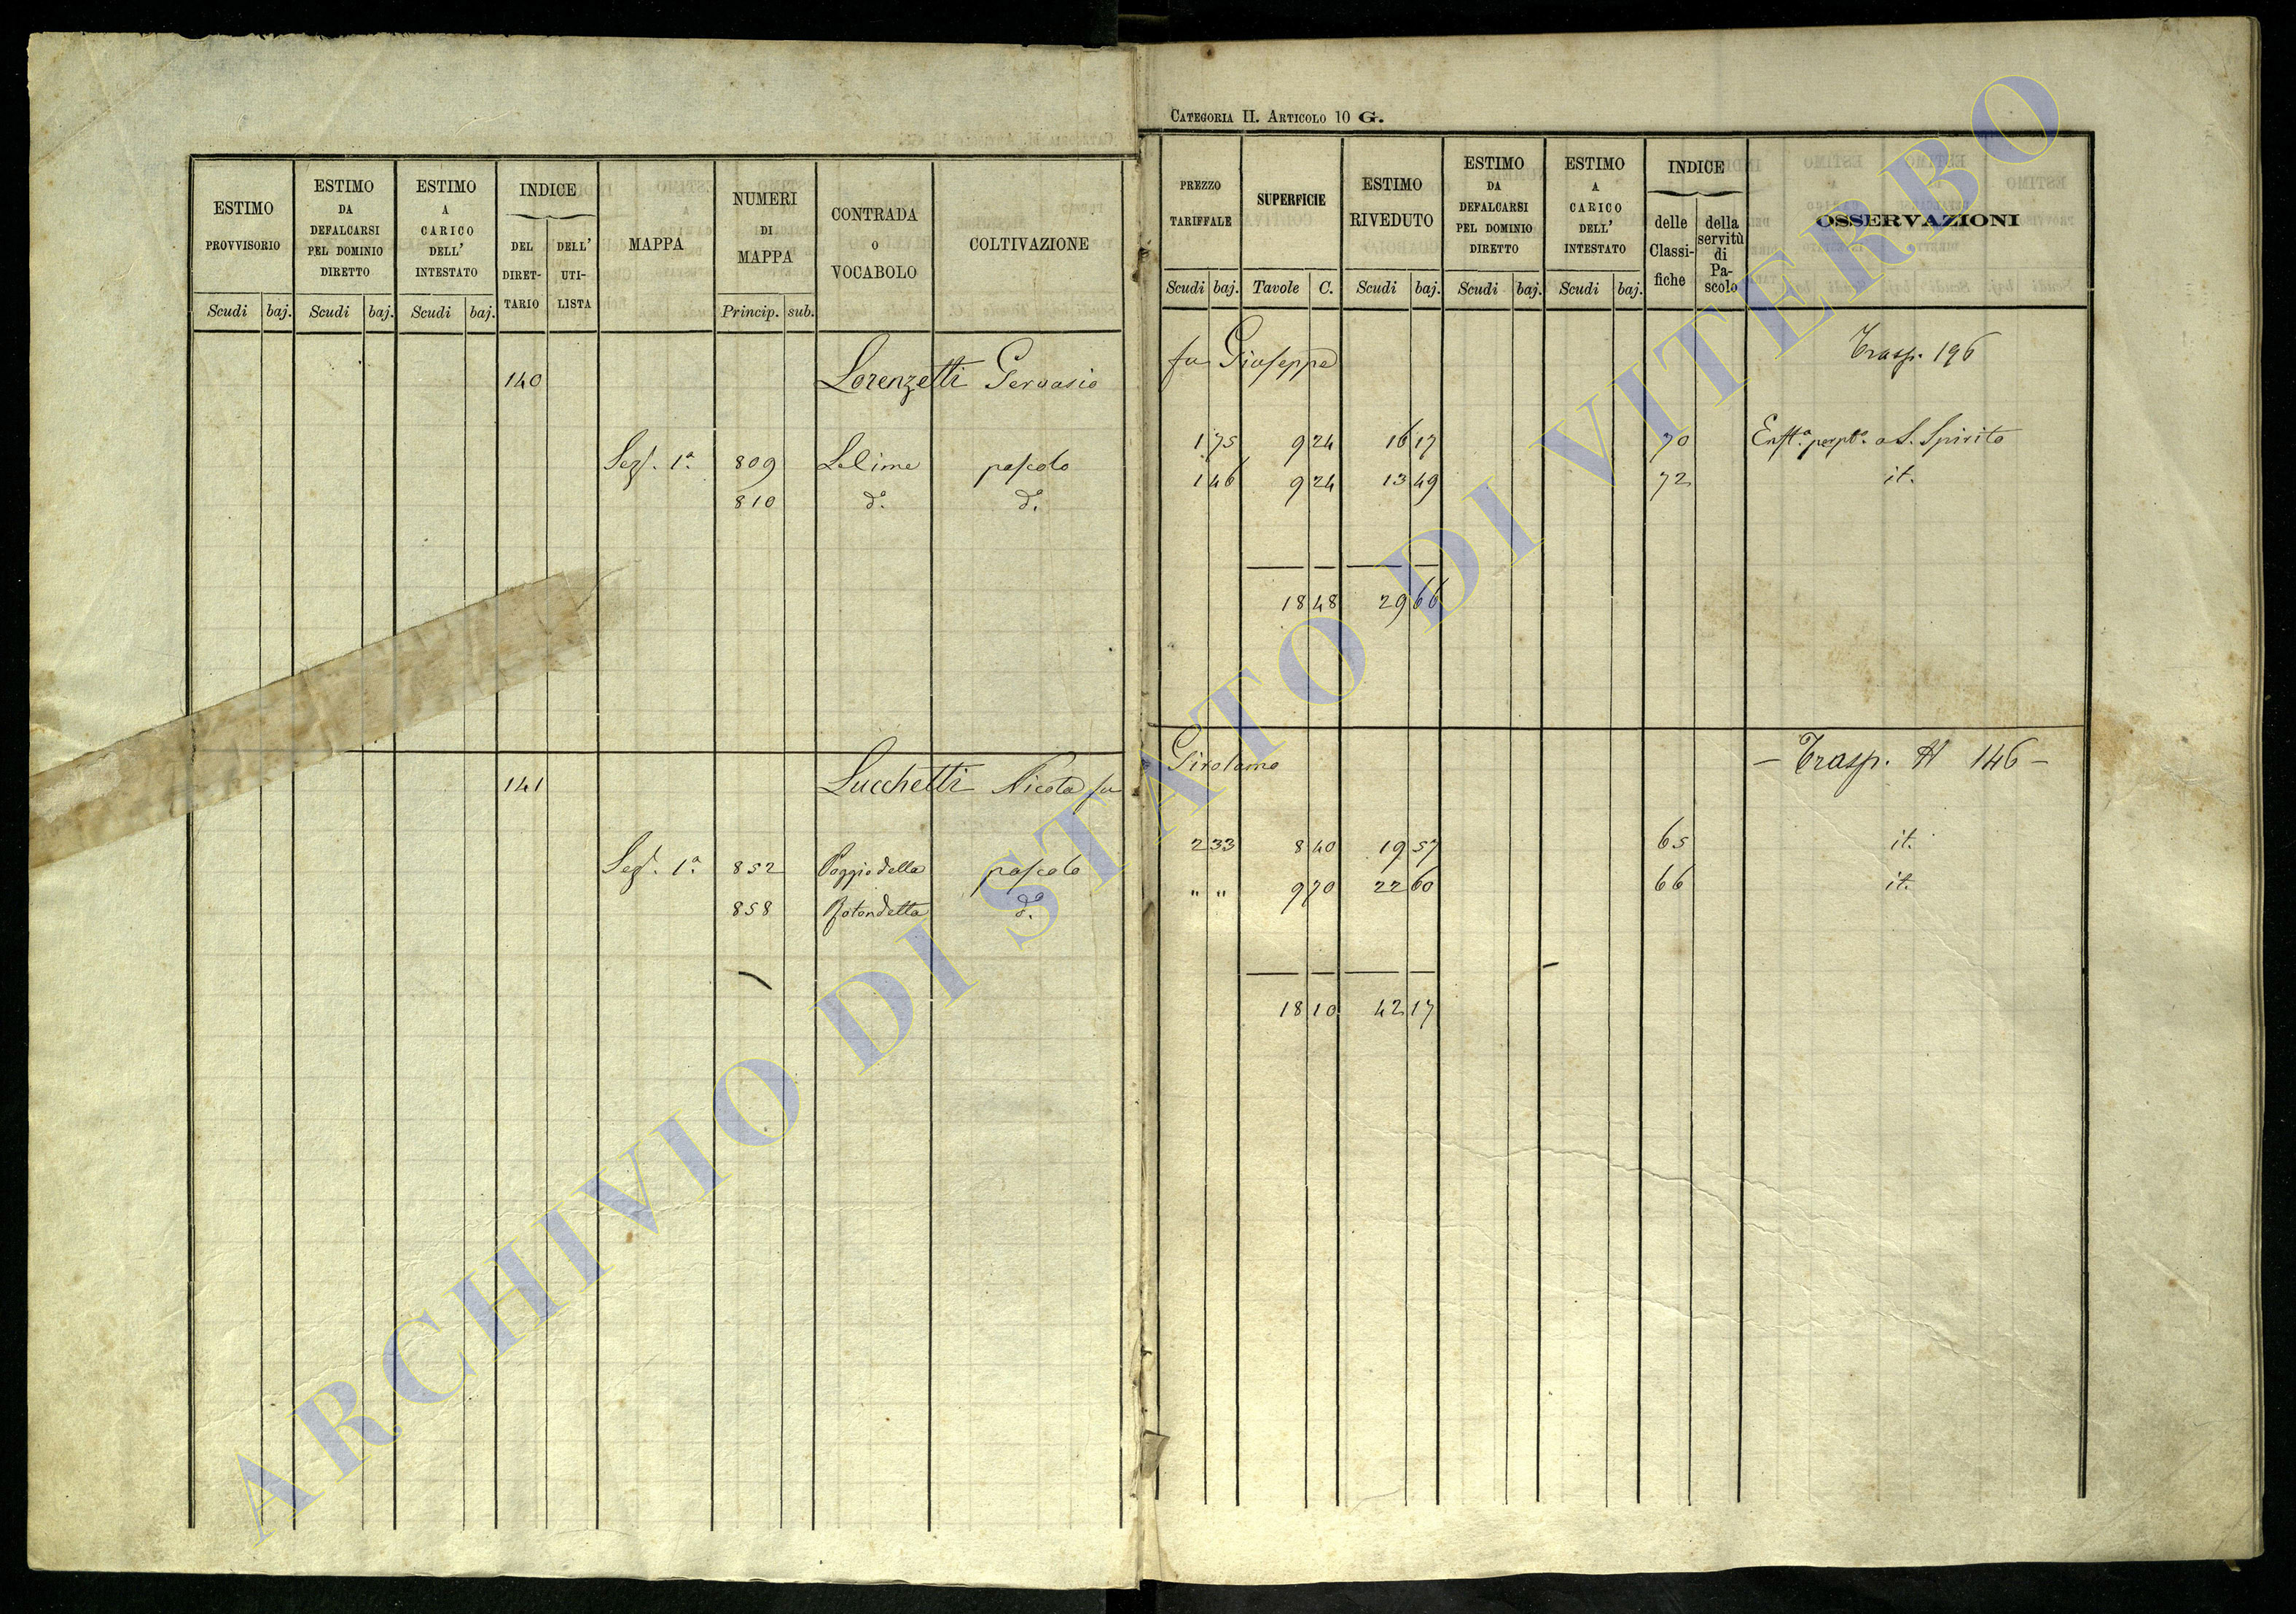 CATEGORIA II. ARTICOLO 10 G.
ESTIMO PROVVISORIO
Scudi baj.
ESTIMO DA DEFALCARSI PEL DOMINIO DIRETTO
Scudi baj.
ESTIMO A CARICO DELL' INTESTATO
Scudi baj.
INDICE
DEL DIRET-TARIO
DELL' UTI-LISTA
MAPPA
NUMERI DI MAPPA
Princip. sub.
CONTRADA O VOCABOLO
COLTIVAZIONE
PREZZO TARIFFALE
Scudi baj.
SUPERFICIE
Tavole C.
ESTIMO RIVEDUTO
Scudi baj.
ESTIMO DA DEFALCARSI PEL DOMINIO DIRETTO
Scudi baj.
ESTIMO A CARICO DELL' INTESTATO
Scudi baj.
INDICE
delle Classi-fiche
della servitù di Pa-scolo
OSSERVAZIONI
140 Lorenzetti Gervasio fu Giuseppe Trasp. 196
Sez. 1a. 809 Lelime pascolo 1 75 9 24 16 17 70 Enfta. perpta. a S. Spirito
810 do. do. 1 46 9 24 13 49 72 it.
18 48 29 66
141 Lucchetti Nicola fu Girolamo — Trasp. Al 146 —
Sez. 1a. 852 Poggio della pascolo 2 33 8 40 19 57 65 it.
858 Rotondetta do. " " 9 70 22 60 66 it.
18 10 42 17
ARCHIVIO DI STATO DI VITERBO